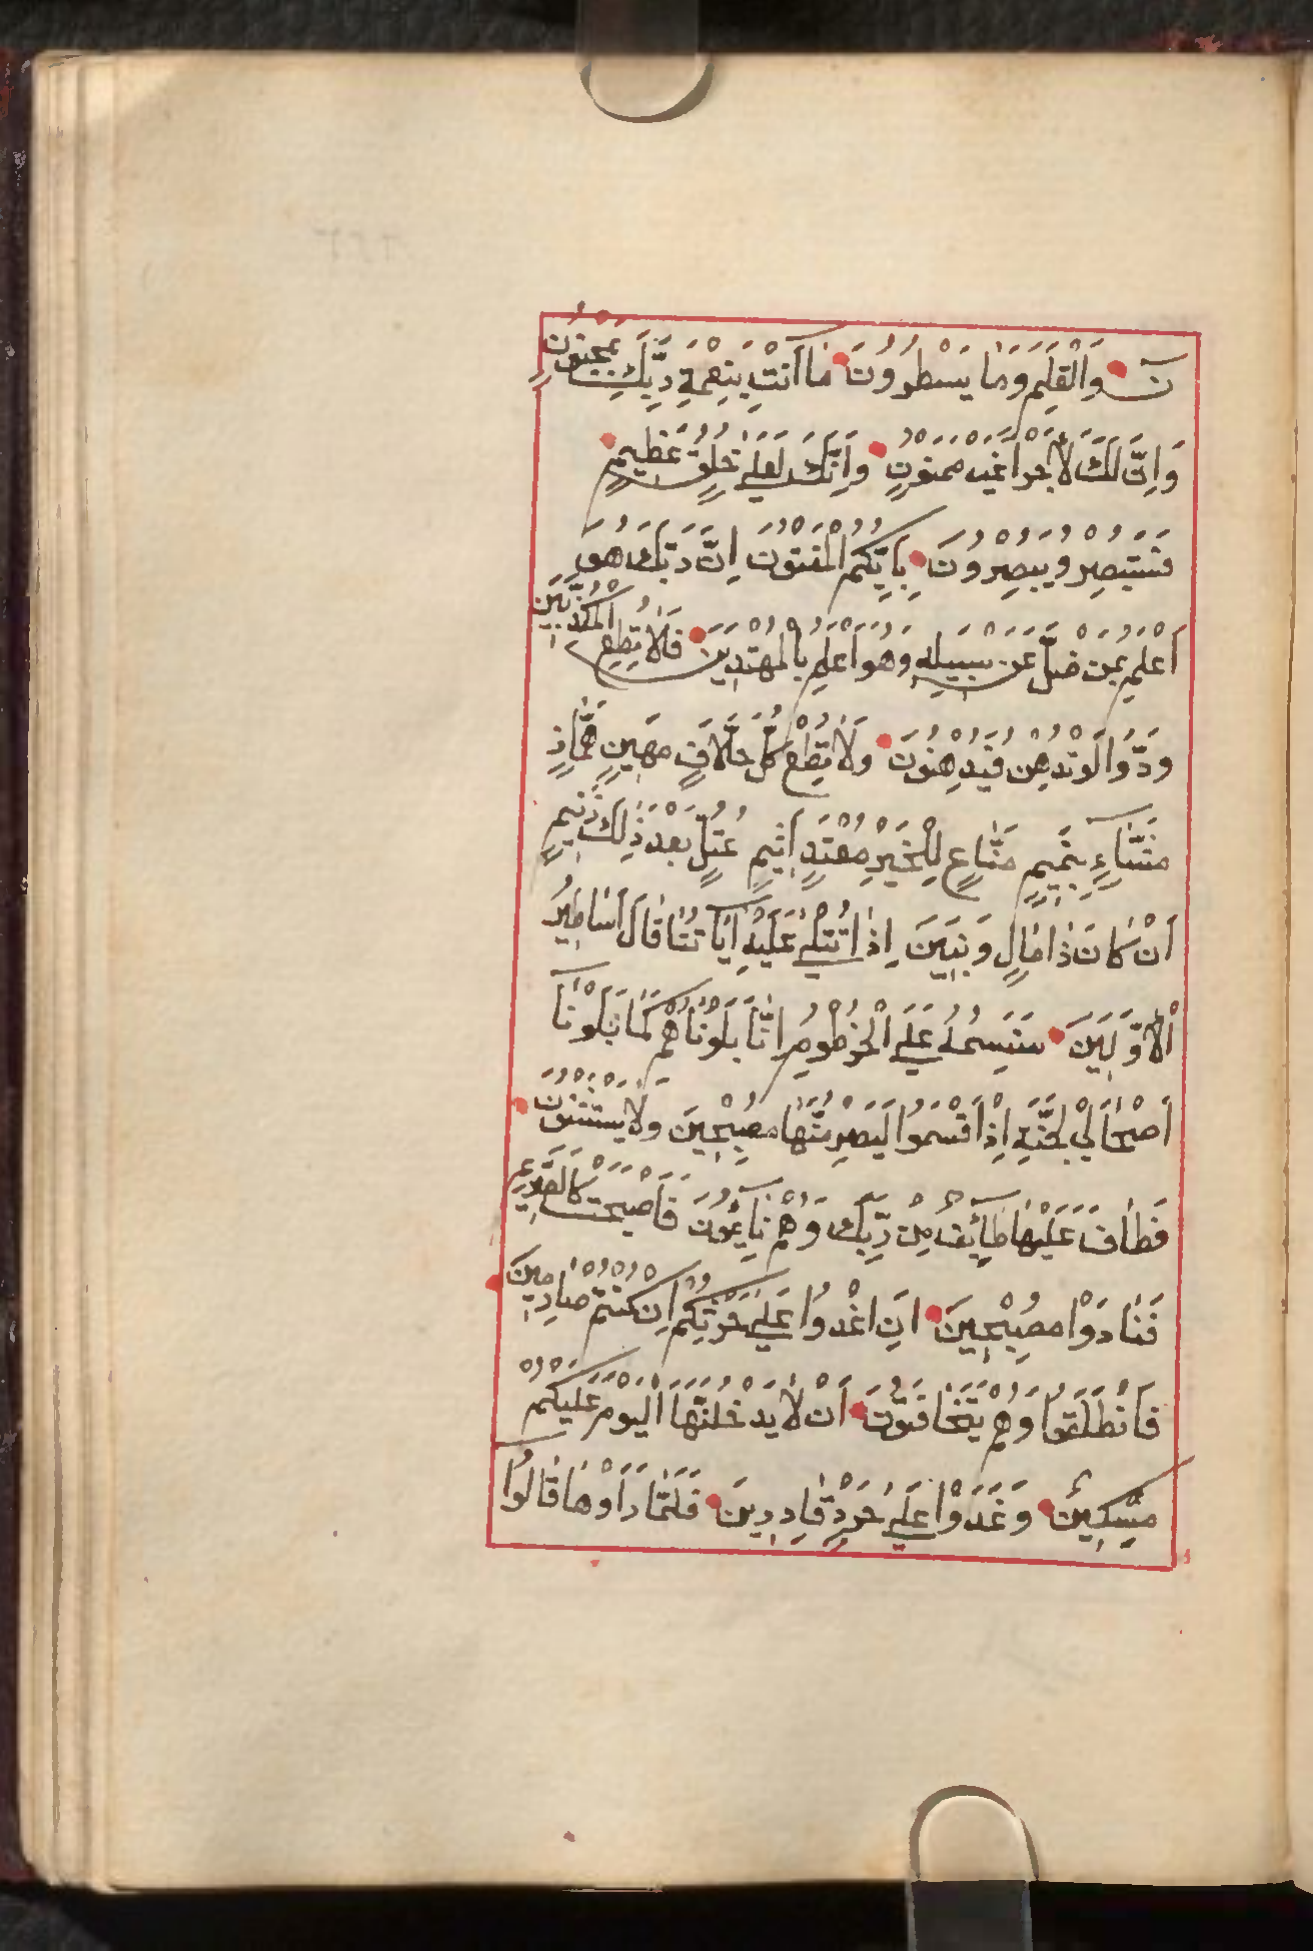 نٓ وَالْقَلَمِ وَمَا يَسْطُرُونَ مَا اَنْتَ بِنِعْمَةِ رَبِّكَ بِمَجْنُونٍ
وَاِنَّ لَكَ لَاَجْرًا غَيْرَ مَمْنُونٍ وَاِنَّكَ لَعَلٰى خُلُقٍ عَظِيمٍ
فَسَتُبْصِرُ وَيُبْصِرُونَ بِاَيِّكُمُ الْمَفْتُونُ اِنَّ رَبَّكَ هُوَ
اَعْلَمُ بِمَنْ ضَلَّ عَنْ سَبِيلِهِ وَهُوَ اَعْلَمُ بِالْمُهْتَدِينَ فَلَا تُطِعِ الْمُكَذِّبِينَ
وَدُّوا لَوْ تُدْهِنُ فَيُدْهِنُونَ وَلَا تُطِعْ كُلَّ حَلَّافٍ مَهِينٍ هَمَّازٍ
مَشَّاءٍ بِنَمِيمٍ مَنَّاعٍ لِلْخَيْرِ مُعْتَدٍ اَثِيمٍ عُتُلٍّ بَعْدَ ذٰلِكَ زَنِيمٍ
اَنْ كَانَ ذَا مَالٍ وَبَنِينَ اِذَا تُتْلٰى عَلَيْهِ اٰيَاتُنَا قَالَ اَسَاطِيرُ
الْاَوَّلِينَ سَنَسِمُهُ عَلَى الْخُرْطُومِ اِنَّا بَلَوْنَاهُمْ كَمَا بَلَوْنَا
اَصْحَابَ الْجَنَّةِ اِذْ اَقْسَمُوا لَيَصْرِمُنَّهَا مُصْبِحِينَ وَلَا يَسْتَثْنُونَ
فَطَافَ عَلَيْهَا طَائِفٌ مِنْ رَبِّكَ وَهُمْ نَائِمُونَ فَاَصْبَحَتْ كَالصَّرِيمِ
فَتَنَادَوْا مُصْبِحِينَ اَنِ اغْدُوا عَلٰى حَرْثِكُمْ اِنْ كُنْتُمْ صَارِمِينَ
فَانْطَلَقُوا وَهُمْ يَتَخَافَتُونَ اَنْ لَا يَدْخُلَنَّهَا الْيَوْمَ عَلَيْكُمْ
مِسْكِينٌ وَغَدَوْا عَلٰى حَرْدٍ قَادِرِينَ فَلَمَّا رَاَوْهَا قَالُوا